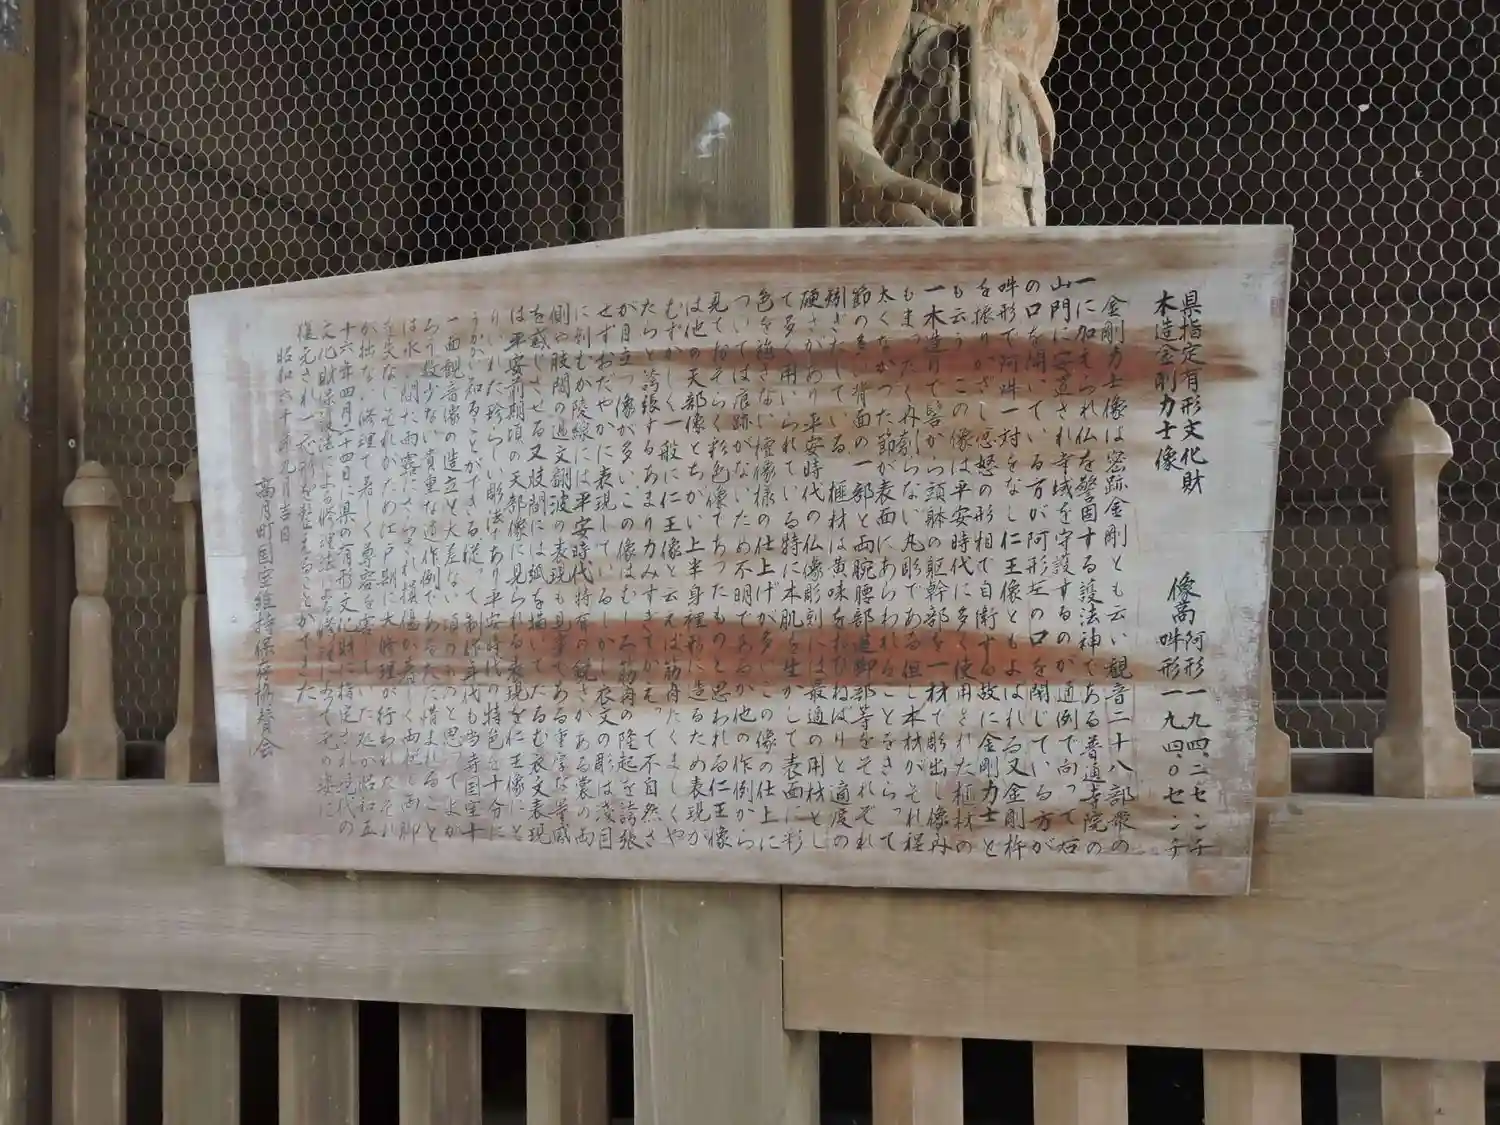 県指定有形文化財
木造金剛力士像
像高 阿形一九四、二センチ
吽形一九四、〇センチ
金剛力士像は密跡金剛とも云い観音二十八部衆の
一に加えられ仏を警固する護法神である普通寺院の
山門に安置され寺域を守護するのが通例で向って右
の口を開いている方が阿形左の口を閉じている方が
吽形で阿吽一対をなし仁王像ともよばれる又金剛杵
を振りかざし忿怒の形相で自衛する故に金剛力士と
も云う この像は平安時代に多く使用された榧材の
一木造りで髻から頭躰の躯幹部を一材で彫出し像内
もまったく内刳らない丸彫である但し木材がそれ程
太くなかった節が表面にあらわれることをきらって
節の多い背面の一部と両腕腰部 等をそれぞれ
矧ぎたしている 榧材は黄味をおびねばりと適度の
硬さがあり平安時代の仏像彫刻には最適の用材とし
て多く用いられている特に木肌を生かして表面に彩
色を施さない檀像様の仕上げが多いこの像の仕上に
ついては痕跡がないため不明であるが他の作例から
見ておそらく彩色像であったものと思われる仁王像
は他の天部像とちがい上半身裸形に造るため表現が
むずかしく一般に仁王像と云えば筋骨たくましくや
たらと誇張するあまり力みすぎてかえって不自然さ
が目立つ像が多いこの像はむしろ筋骨の隆起を誇張
せずおだやかに表現しているしかし衣文の彫は浅目
に刻むが陵線には平安時代特有の鋭さがある裳の両
側や股間の過文翻波の表現も見事である重厚な量感
を感じさせる又股間には弧を描いてたるむ衣文表現
は平安前期頃の天部像に見られる表現を仁王像にと
りいれた珍らしい彫法であり平安時代の特色を十分に
うかがい知ることができる従って制作年代も当寺国宝十
一面観音像の造立と大差ない頃のものと思ってよか
ろう数少ない貴重な遺作例であるただ惜まれること
は永い間た雨露にさらされ損傷が著しく両腕と両脚
を失なしそれがため江戸期に大修理が行われたそれ
が拙ない修理で著しく尊容を害していた処が昭和五
十六年四月二十四日に県の有形文化財に指定され現代の
文化財保護法による修理法による修理によって元の姿に
復元され一応形を整えることができた
昭和六十年九月吉日
高月町国宝維持保存協賛会